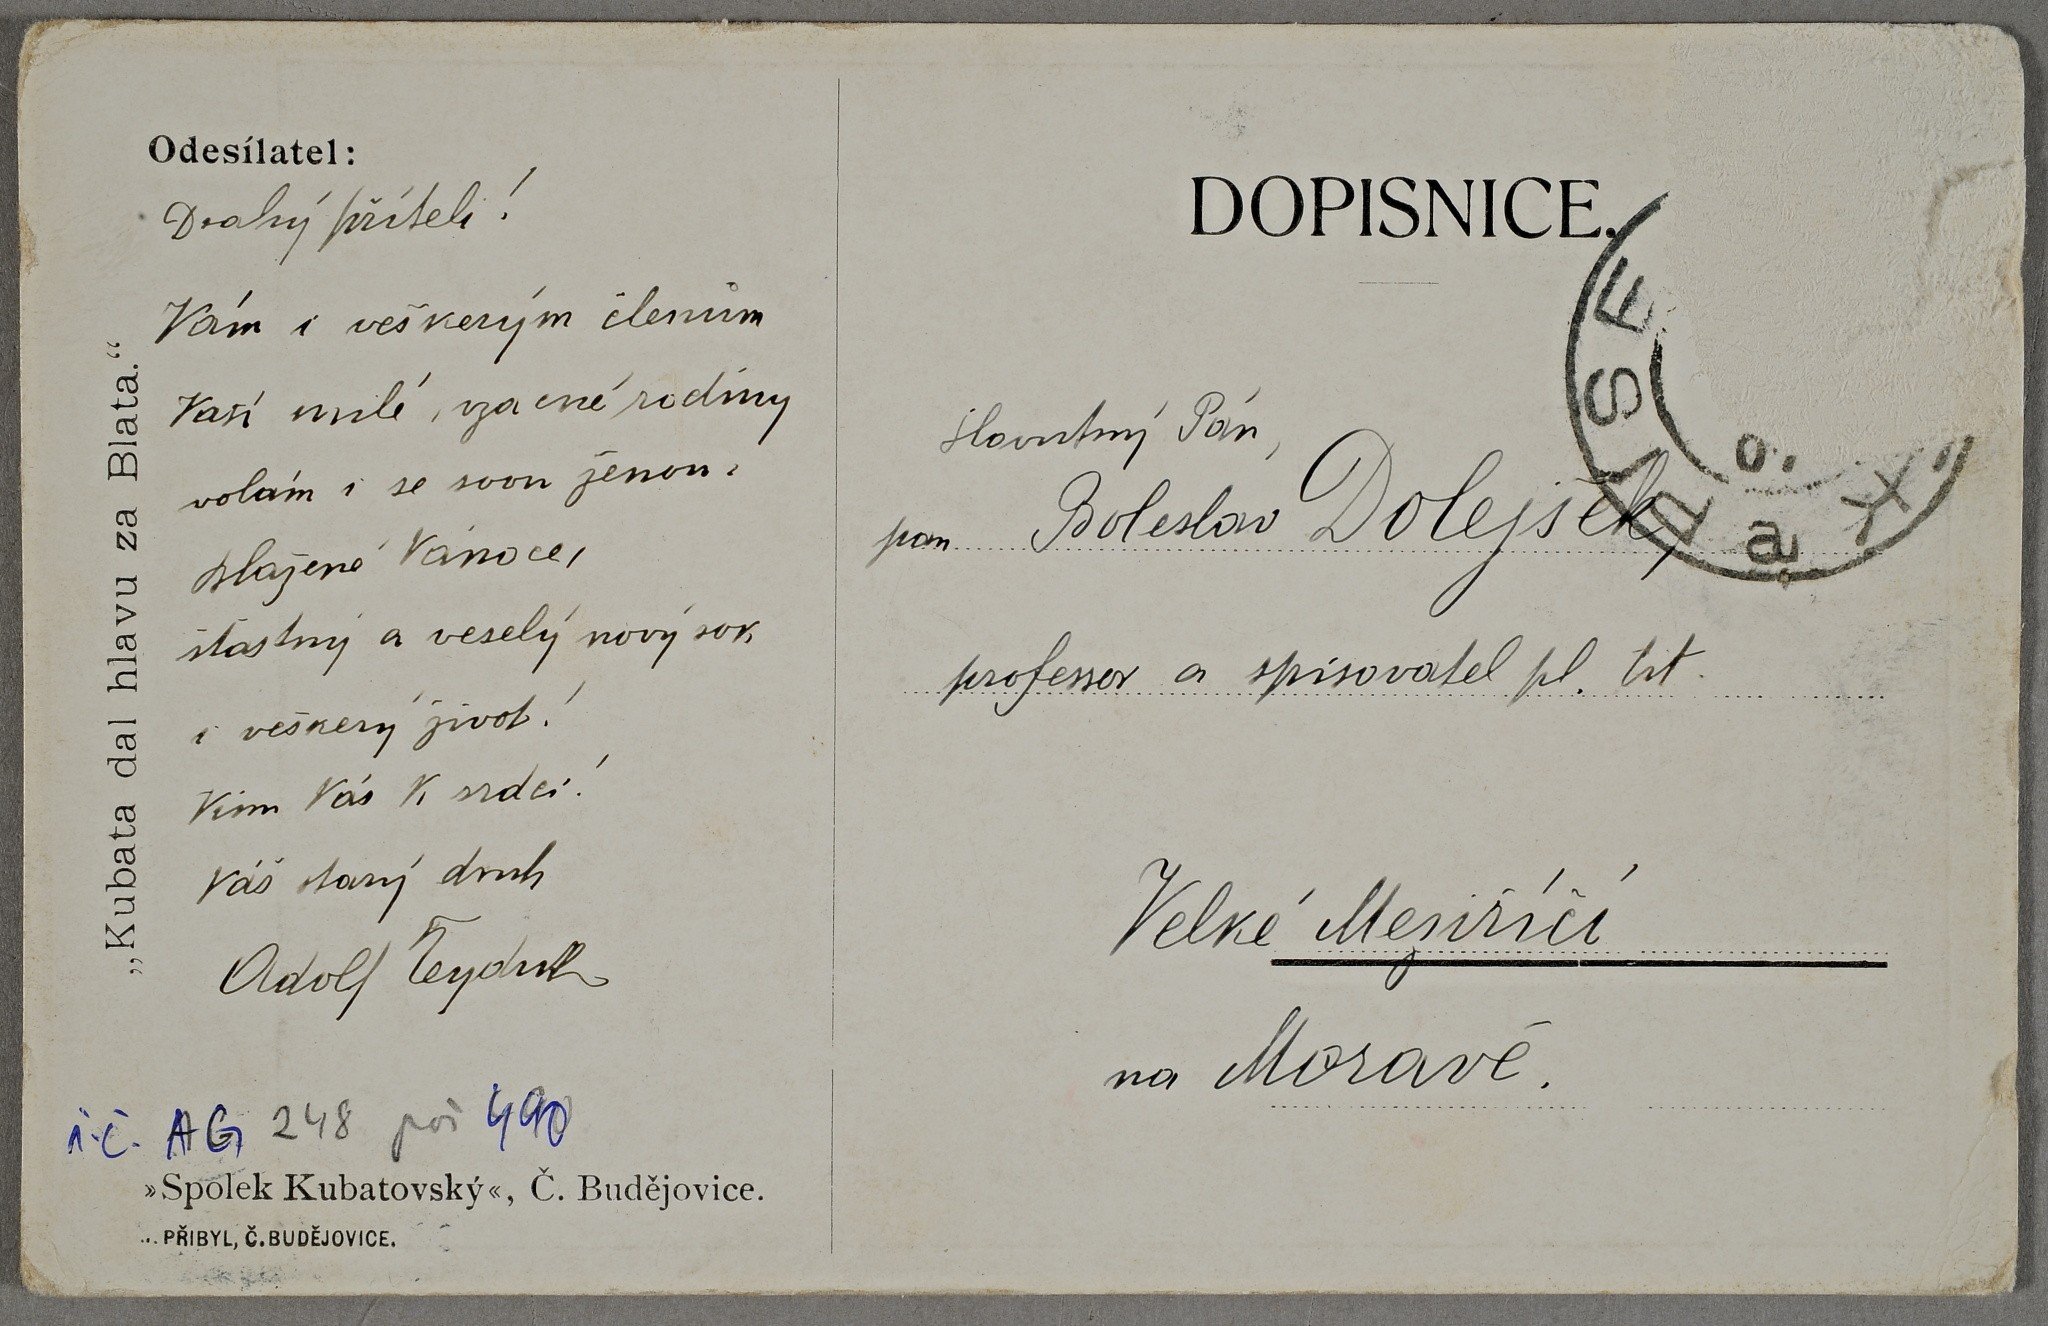 Odesílatel:
Drahý příteli!
Vám i veškerým členům
Vaší milé, vzacné rodiny
volám i se svou ženou:
blažené Vánoce,
šťastný a veselý nový rok
i veškerý život!
Vinu Vás k srdci!
Váš starý druh
Adolf
„Kubata dal hlavu za Blata.“
i.č. AG 248 poř 490
»Spolek Kubatovský«, Č. Budějovice.
PŘIBYL, Č. BUDĚJOVICE.
DOPISNICE.
PISE
a.
o.
Slovutný Pán,
pan Boleslav Dolejšek,
professor a spisovatel pl. tit.
Velké Meziříčí
na Moravě.